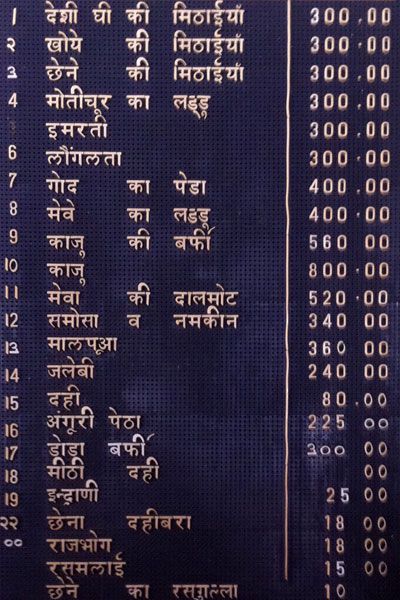 1 देशी घी की मिठाईयाँ 300.00
२ खोये की मिठाईयाँ 300.00
३ छेने की मिठाईयाँ 300.00
4 मोतीचूर का लड्डू 300.00
इमरती 300.00
6 लौंगलता 300.00
7 गोद का पेडा 400.00
8 मेवे का लड्डू 400.00
9 काजु की बर्फी 560 00
10 काजु 800.00
11 मेवा की दालमोट 520.00
12 समोसा व नमकीन 340 00
13 मालपूआ 360 00
14 जलेबी 240 00
15 दही 80.00
16 अंगूरी पेठा 225 00
17 डोडा बर्फी ३00 00
18 मीठी दही 00
19 इन्द्राणी 25 00
२२ छेना दहीबरा 18 00
00 राजभोग 18 00
रसमलाई 15 00
छेने का रसगुल्ला 10